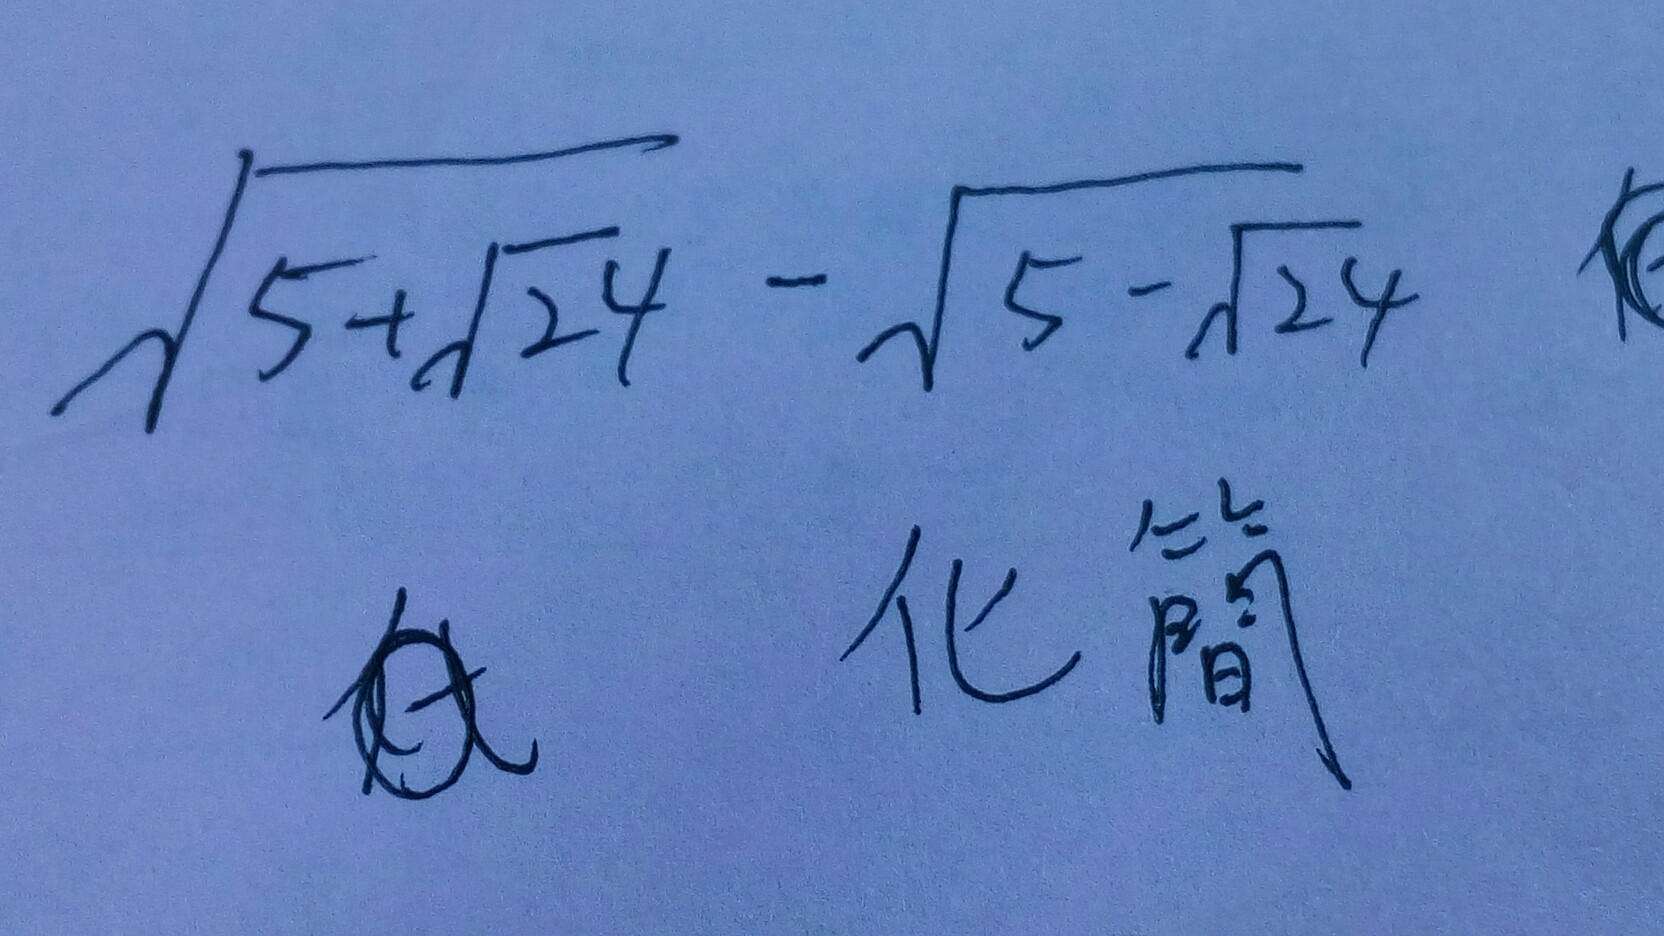 √(5+√24) - √(5-√24)
化簡